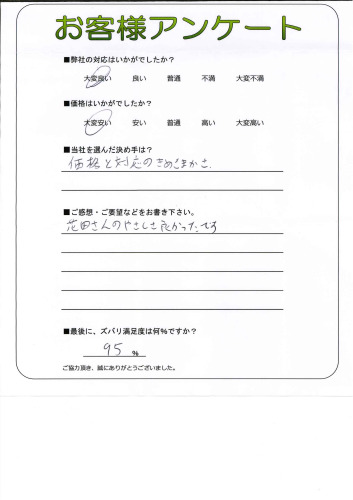 お客様アンケート
■弊社の対応はいかがでしたか?
大変良い 良い 普通 不満 大変不満
■価格はいかがでしたか?
大変安い 安い 普通 高い 大変高い
■当社を選んだ決め手は?
価格と対応のきめこまかさ.
■ご感想・ご要望などをお書き下さい。
花田さんのやさしさ良かったです
■最後に、ズバリ満足度は何%ですか?
95 %
ご協力頂き、誠にありがとうございました。